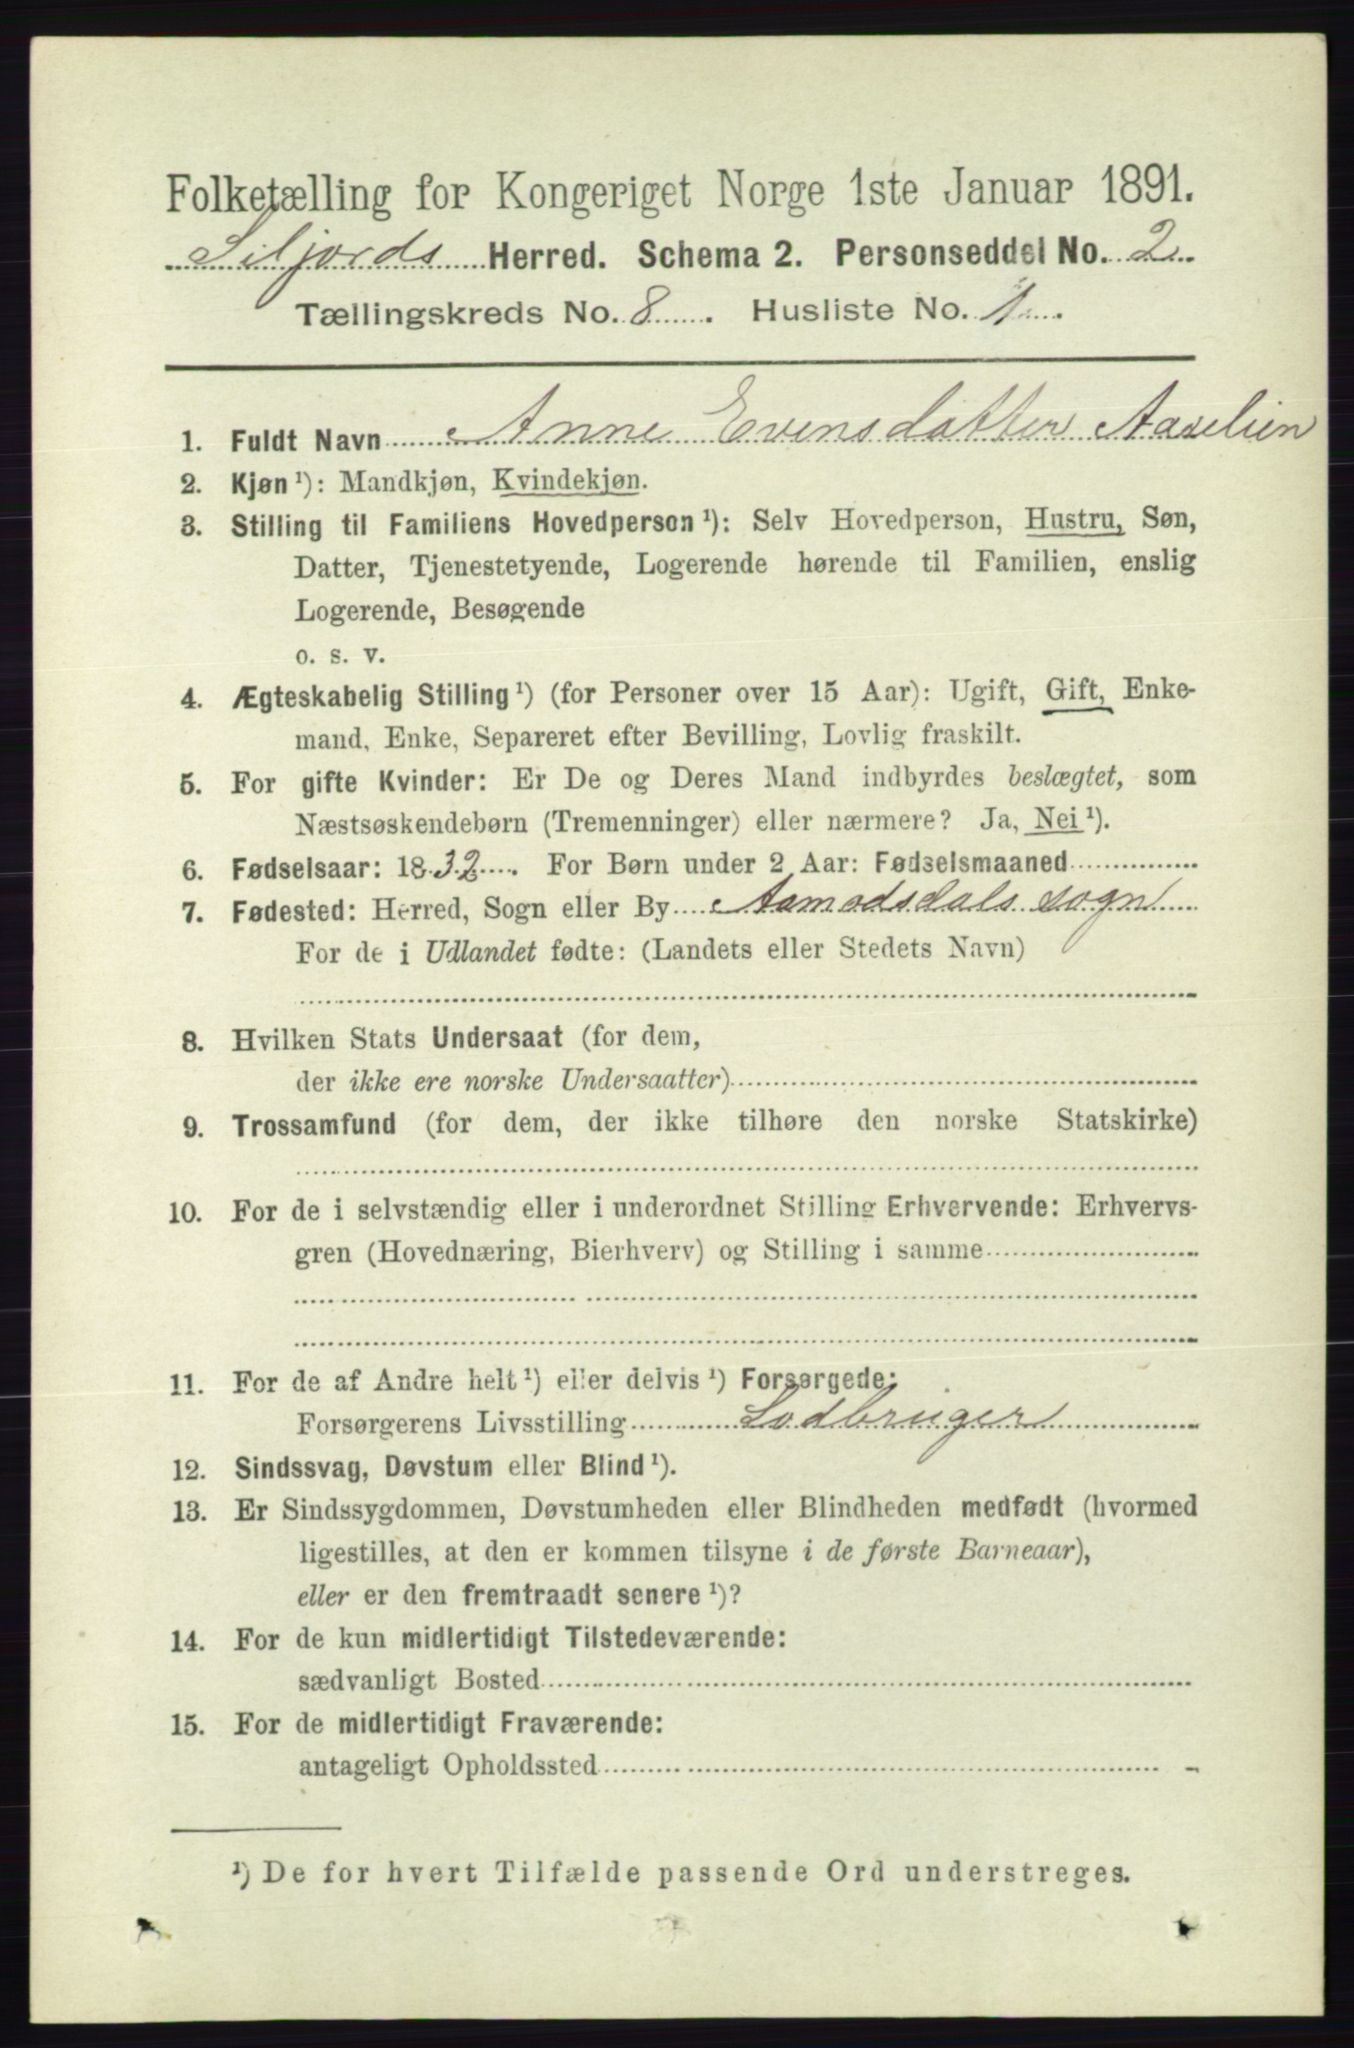 Folketælling for Kongeriget Norge 1ste Januar 1891.
Siljords Herred. Schema 2. Personseddel No. 2
Tællingskreds No. 8. Husliste No. 1.
1. Fuldt Navn Anne Evensdatter Aaselien
2. Kjøn ¹): Mandkjøn, Kvindekjøn.
3. Stilling til Familiens Hovedperson ¹): Selv Hovedperson, Hustru, Søn,
Datter, Tjenestetyende, Logerende hørende til Familien, enslig
Logerende, Besøgende
o. s. v.
4. Ægteskabelig Stilling ¹) (for Personer over 15 Aar): Ugift, Gift, Enke-
mand, Enke, Separeret efter Bevilling, Lovlig fraskilt.
5. For gifte Kvinder: Er De og Deres Mand indbyrdes beslægtet, som
Næstsøskendebørn (Tremenninger) eller nærmere? Ja, Nei ¹).
6. Fødselsaar: 1832. For Børn under 2 Aar: Fødselsmaaned
7. Fødested: Herred, Sogn eller By Aamodsdals sogn
For de i Udlandet fødte: (Landets eller Stedets Navn)
8. Hvilken Stats Undersaat (for dem,
der ikke ere norske Undersaatter)
9. Trossamfund (for dem, der ikke tilhøre den norske Statskirke)
10. For de i selvstændig eller i underordnet Stilling Erhvervende: Erhvervs-
gren (Hovednæring, Bierhverv) og Stilling i samme
11. For de af Andre helt ¹) eller delvis ¹) Forsørgede:
Forsørgerens Livsstilling Lodbruger
12. Sindssvag, Døvstum eller Blind ¹).
13. Er Sindssygdommen, Døvstumheden eller Blindheden medfødt (hvormed
ligestilles, at den er kommen tilsyne i de første Barneaar),
eller er den fremtraadt senere ¹)?
14. For de kun midlertidigt Tilstedeværende:
sædvanligt Bosted
15. For de midlertidigt Fraværende:
antageligt Opholdssted
¹) De for hvert Tilfælde passende Ord understreges.